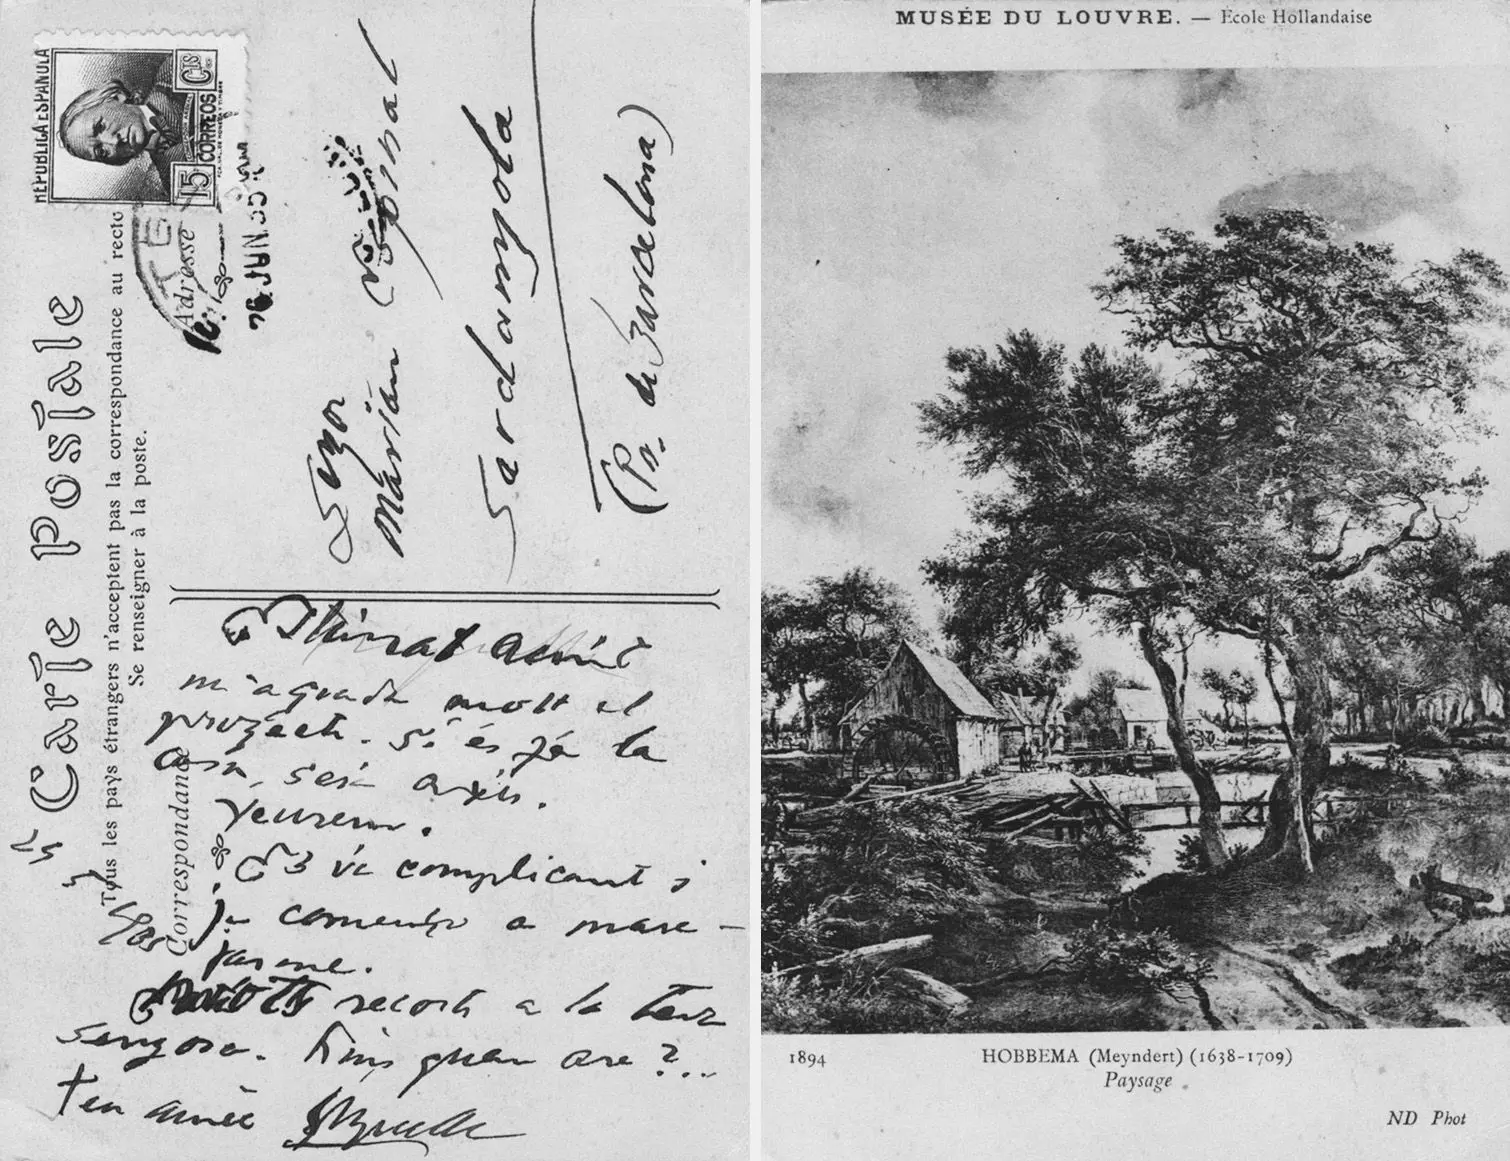 Carte Postale
Tous les pays étrangers n'acceptent pas la correspondance au recto
Se renseigner à la poste.
Correspondance
Adresse
REPÚBLICA ESPAÑOLA
15 CTS
CORREOS
JAN. 35
Snyor
Marian
Sardanyola
(Pr. de Barcelona)
Estimat amic
m'agrada molt el
projecte. Si és fa la
cosa, serà
Veurem.
Es va complicant i
ja començo a mare-
jar me.
records a la teva
senyora. Fins quan are?...
ton amic
MUSÉE DU LOUVRE. — Ecole Hollandaise
1894
HOBBEMA (Meyndert) (1638-1709)
Paysage
ND Phot